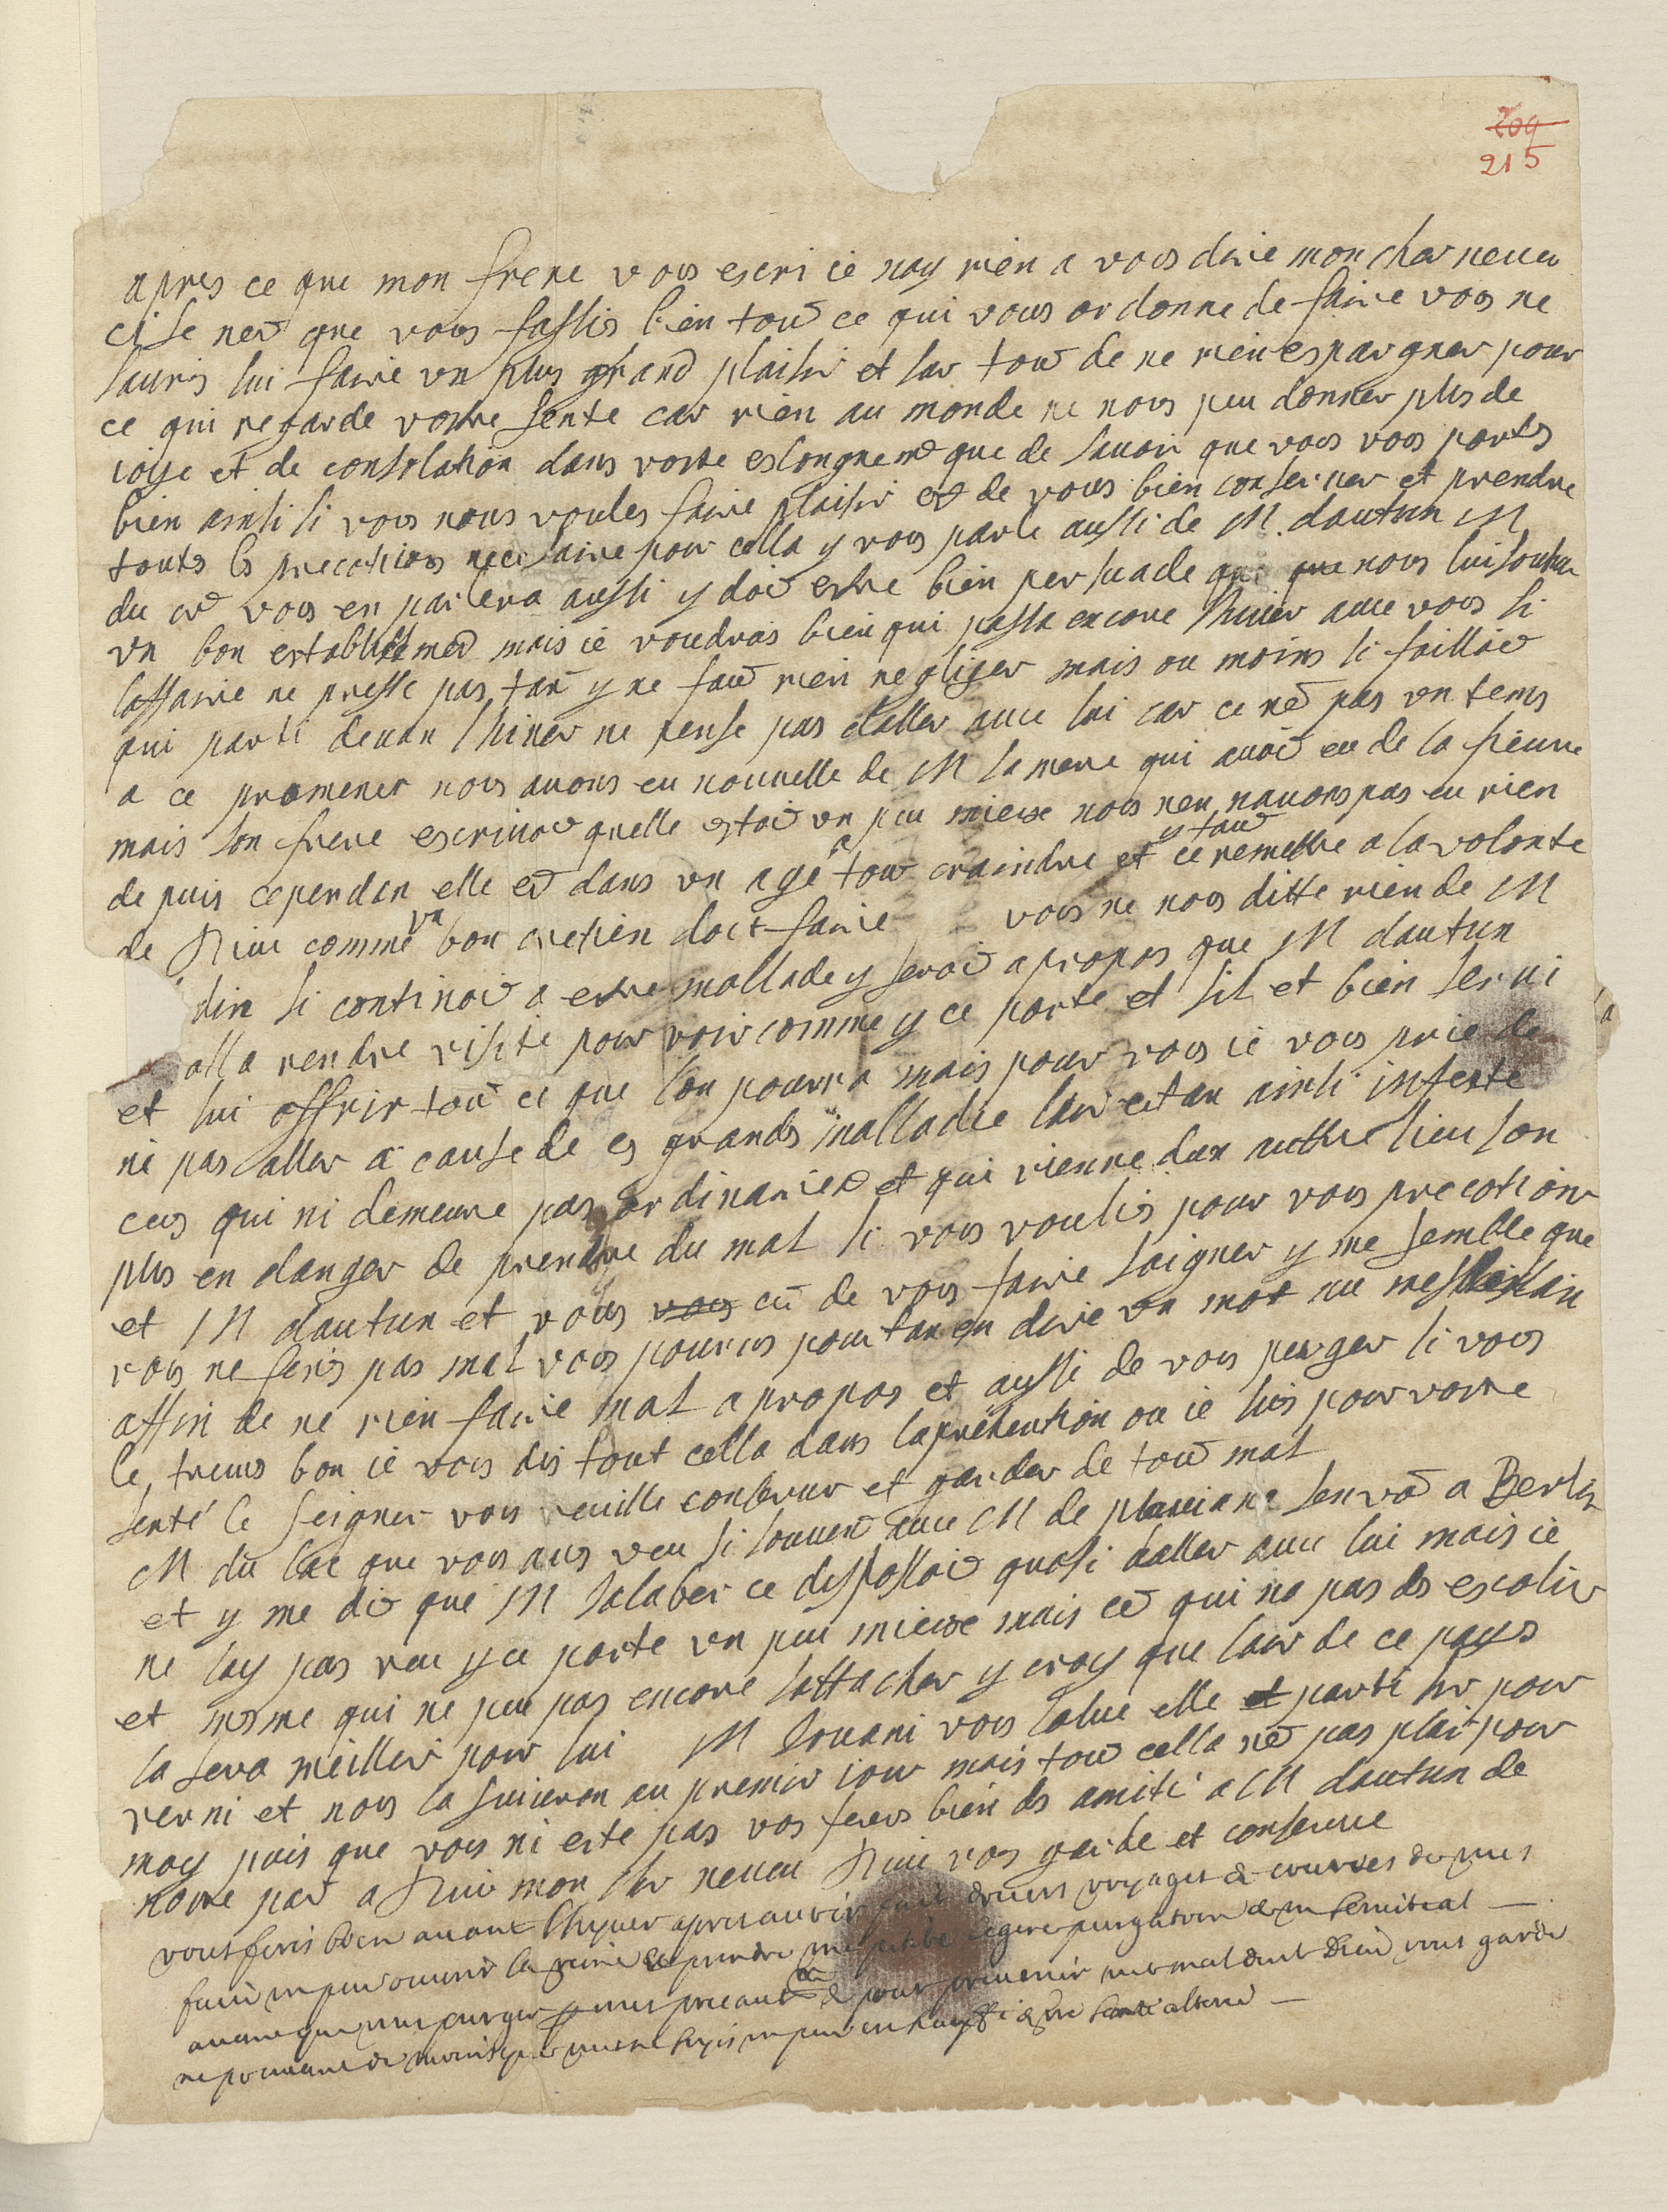 209
215
apres ce que mon frere vous escri ie nay rien a vous dire mon cher neveu
ci se net que vous fassiés bien tout ce qui vous ordonne de faire vous ne
sauriés lui faire un plus grand plaisir et sur tout de ne rien espargner pour
ce qui regarde vostre sente car rien au monde ne nous peu donner plus de
ioye et de consolation dans vostre eslongnemt que de savoir que vous vous portés
bien ainsi si vous nous voules faire plaisir et de vous bien conserver et prendre
touts les precotions necessaire pour cella y vous parle aussi de M. dautun M
du vous en parlera aussi y doit estre bien persuade que nous lui souhai
un bon establissemet mais ie voudrais bien qui passa encore lhiver avec vous si
laffaire ne presse pas tant y ne faut rien negliger mais ou moins si failloit
qui parti devan lhiver ne pense pas daller avec lui car ce net pas un tems
a ce promener nous avons eu nouvelle de M la mere qui avoit eu de la fieuvre
mais son frere escrivoit quelle estoit un peu mieux nous nen navons pas eu rien
depuis cependan elle et dans un age a tout craindre et y faut ce remettre a la volonte
de Dieu comme un bon cretien doit faire vous ne nous ditte rien de M
din si continoit a estre mallade y seroit apropos que M dautun
alla rendre visite pour voir comme y ce porte et sil et bien servi
et lui offrir tout ce que lon pourra mais pour vous ie vous prie de
ni pas aller a cause de ces grands malladie lair estan ainsi infecte
ceus qui ni demeure pas ordinairet et qui vienne dun autre lieu son
plus en danger de prendre du mal si vous vouliés pour vous precotioner
et M dautun et vous de vous faire saigner y me semble que
vous ne feriés pas mal vous pouriés pourtan en dire un mot au
affin de ne rien faire mal a propos et aussi de vous purger si vous
le treuvés bon ie vous dis tout cella dans laprehention ou ie suis pour vostre
senté le seigner vous veuille conserver et garder de tout mal
M du lac que vous aves veu si souvent avec M de sen vat a Berlin
et y me dit que M Salaber ce disposoit quasi daller avec lui mais ie
ne lay pas veu y ce porte un peu mieux mais cet qui na pas des escolier
et mesme qui ne peu pas encore sattacher y croy que lair de ce pays
la sera meilleur pour lui M Iouani vous salue elle et parti hir pour
verni et nous la suivron au premier iour mais tout cella net pas plai pour
moy puis que vous ni este pas vos feres bien des amitié a M dautun de
nostre part a Dieu mon cher neveu Dieu vous garde et conserve
vous feriés bien avant lhyuer apres auoir fait diuers voyages & courses de vous
faire un peu ouurir la veine & prendre une petite legere purgation & un
auant que vous purger p vous precaut & pour preuenir mal dont Dieu vous garde
ne pouuant de moins que vous ne soyés un peu eschauffé & vre santé alteree